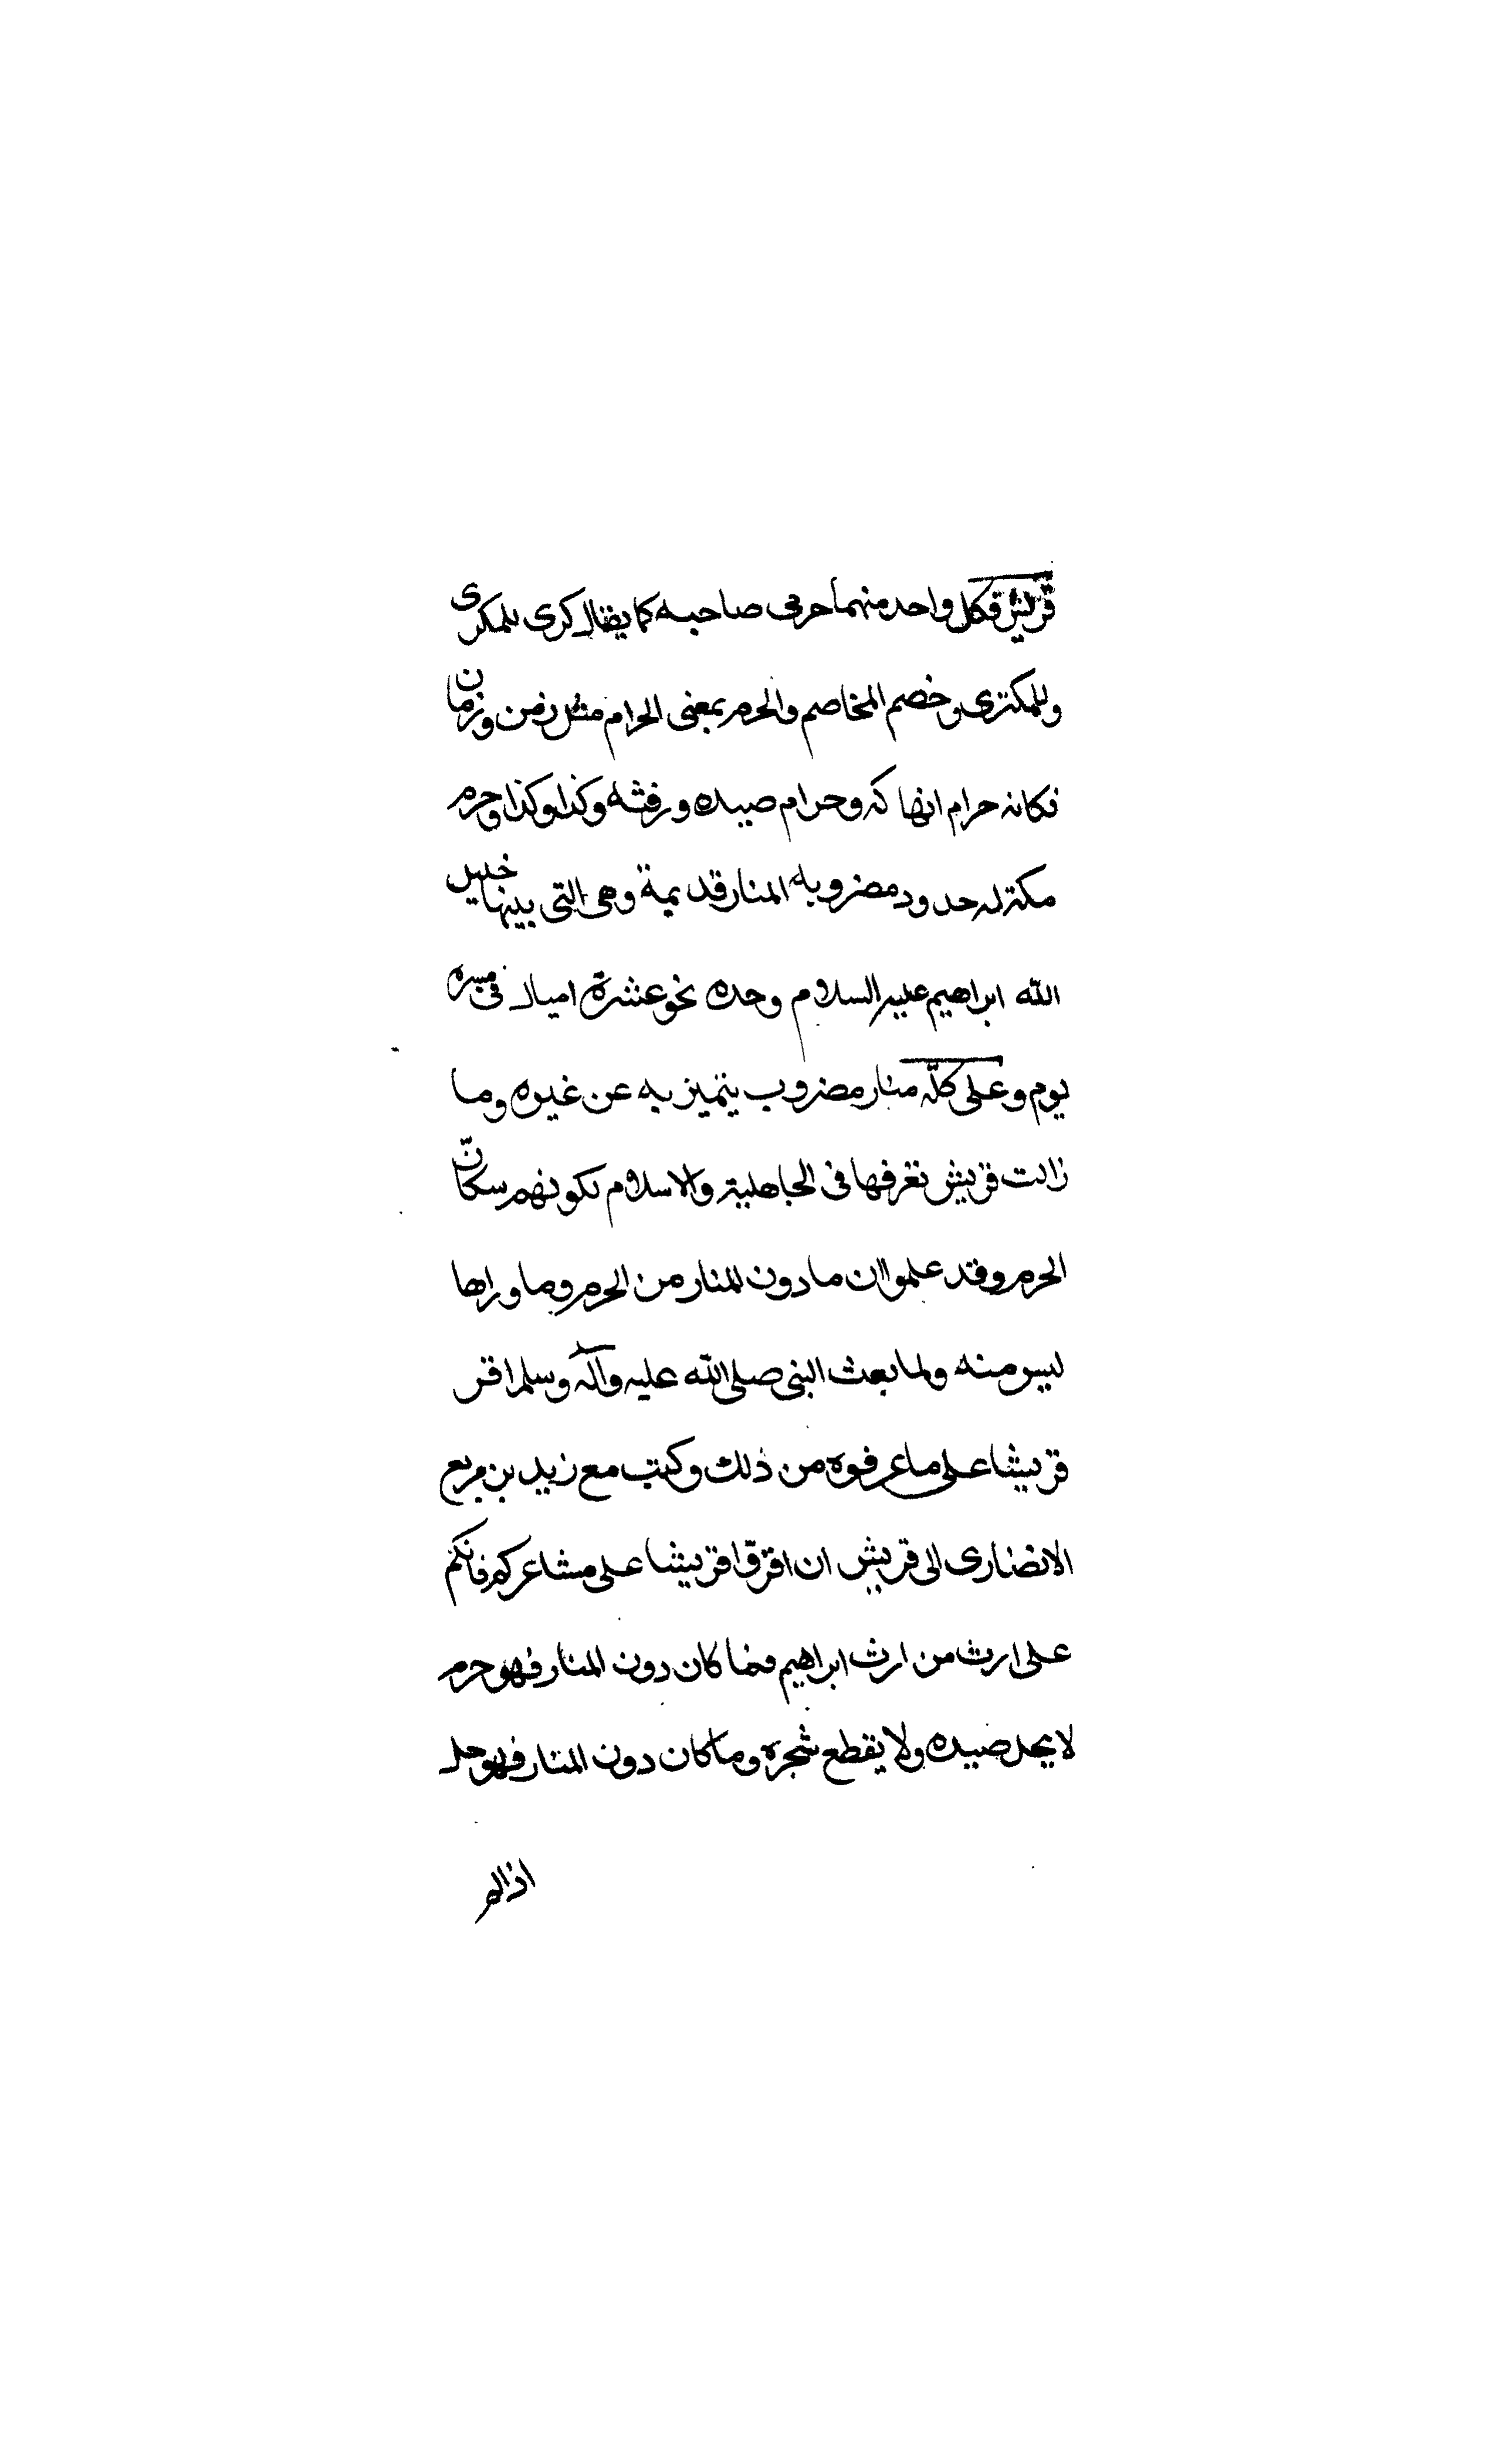 قريش فكل واحد منهما حرمى صاحبه كما يقال كرى للمكرى
وللمكترى وخصم المخاصم والحرم بمعنى الحرام مثل زمن وزمان
فكانه حرام انتهاكه وحرام صيده ورفثه وكذا وكذا وحرم
مكة له حدود مضروبه المنار قديمة وهى التى بينها خليل
الله ابراهيم عليه السلام وحده نحو عشرة اميال فى مسيره
يوم وعلى كلّه منار مضروب يتميز به عن غيره وما
زالت قريش تعرفها فى الجاهلية والاسلام لكونهم سكانّ
الحرم وقد علموا ان ما دون المنار من الحرم وما وراها
ليس منه ولما بعث النبى صلى الله عليه وآله وسلم اقر
قريشا على ما عرفوه من ذلك وكتب مع زيد بن مربع
الانصارى الى قريش ان اقرّوا قريشا على مشاعركم فانكم
على ارث من ارث ابراهيم فما كان دون المنار فهو حرم
لا يحل صيده ولا يقطع شجره وما كان دون المنار فهو حل
اذا لم